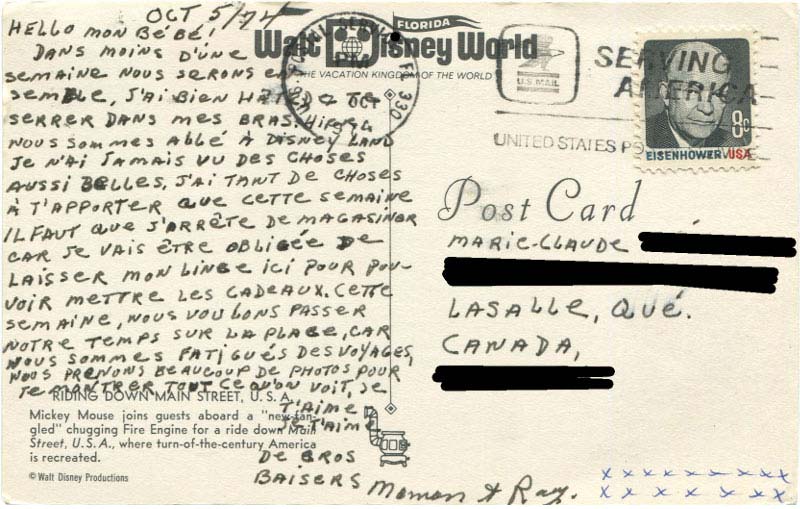 OCT 5/74
HELLO MON BÉBÉ!
DANS MOINS D'ÛNE
SEMAINE NOUS SERONS EN
SEMBLE, J'AI BIEN HÂTE DE TE
SERRER DANS MES BRAS. HIER
NOUS SOMMES ALLÉ À DISNEY LAND
JE N'AI JAMAIS VU DES CHOSES
AUSSI BELLES, J'AI TANT DE CHOSES
À T'APPORTER QUE CETTE SEMAINE
IL FAUT QUE J'ARRÊTE DE MAGASINER
CAR JE VAIS ÊTRE OBLIGÉE DE
LAISSER MON LINGE ICI POUR POU-
VOIR METTRE LES CADEAUX. CETTE
SEMAINE, NOUS VOULONS PASSER
NOTRE TEMPS SUR LA PLAGE, CAR
NOUS SOMMES FATIGUÉS DES VOYAGES,
NOUS PRENONS BEAUCOUP DE PHOTOS POUR
TE MONTRER TOUT CE QU'ON VOIT, JE
T'AIME
JE T'AIME
DE GROS
BAISERS
Maman & Ray.
x x x x x x x x x
x x x x x x x
RIDING DOWN MAIN STREET, U.S.A.
Mickey Mouse joins guests aboard a "new-fan-
gled" chugging Fire Engine for a ride down Main
Street, U.S.A., where turn-of-the-century America
is recreated.
© Walt Disney Productions
FLORIDA
Walt Disney World
THE VACATION KINGDOM OF THE WORLD
PM
OCT
U.S. MAIL
SERVING
AMERICA
UNITED STATES
8c
EISENHOWER USA
Post Card
MARIE-CLAUDE
LASALLE, QUÉ.
CANADA,